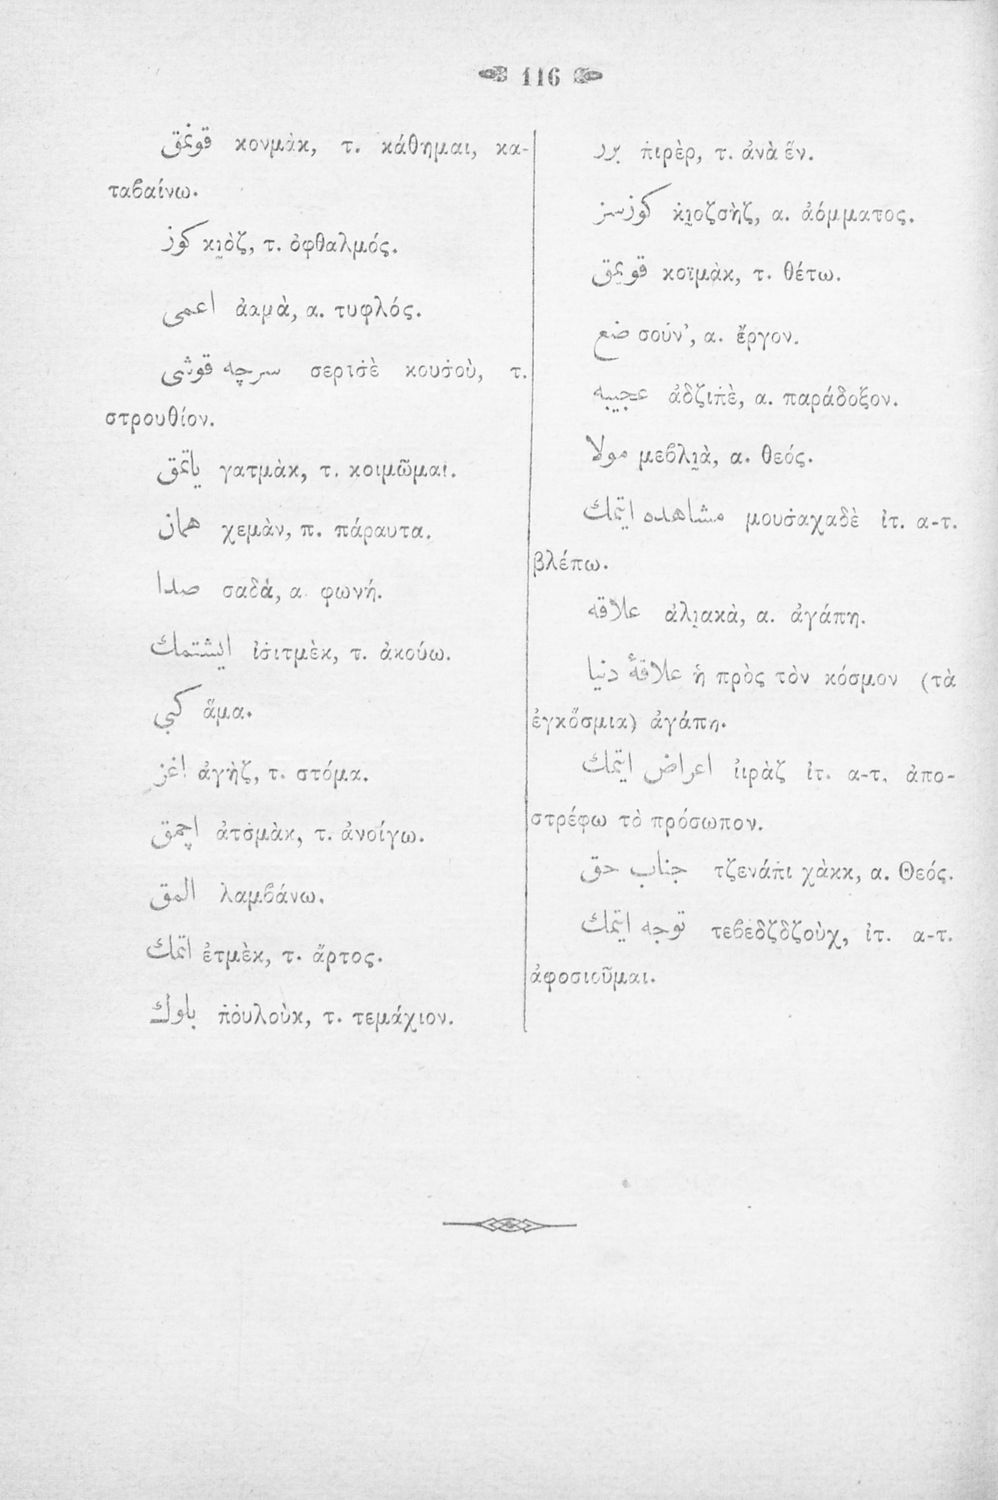 116
قونمق κονμὰκ, τ. κάθημαι, κα-
ταβαίνω.
كوز κι̯ὸζ, τ. ὀφθαλμός.
اعمى ἀαμὰ, α. τυφλός.
سرچه قوشى σερτσ̇ὲ κουσ̇οὺ, τ.
στρουθίον.
ياتمق γατμὰκ, τ. κοιμῶμαι.
همان χεμὰν, π. πάραυτα.
صدا σαδὰ, α. φωνή.
ايشتمك ἰσ̇ιτμὲκ, τ. ἀκούω.
كبى ἅμα.
اغز ἀγὴζ, τ. στόμα.
اچمق ἀτσ̇μὰκ, τ. ἀνοίγω.
المق λαμβάνω.
اتمك ἐτμὲκ, τ. ἄρτος.
بلوك π̇ὀυλοὺκ, τ. τεμάχιον.
برر π̇ιρὲρ, τ. ἀνὰ ἕν.
كوزسز κ̇ι̯οζσὴζ, α. ἀόμματος.
قويمق κοϊμὰκ, τ. θέτω.
ضع σούν', α. ἔργον.
عجيبه ἀδζιπ̇ὲ, α. παράδοξον.
مولا μεβλι̯ὰ, α. θεός.
مشاهده ايتمك μουσ̇αχαδὲ ἰτ. α-τ.
βλέπω.
علاقه ἀλι̯ακὰ, α. ἀγάπη.
علاقهٔ دنيا ἡ πρὸς τὸν κόσμον (τὰ
ἐγκόσμια) ἀγάπη.
اعراض ايتمك ἰιρὰζ ἰτ. α-τ. ἀπο-
στρέφω τὸ πρόσωπον.
جناب حق τζενάπ̇ι χὰκκ, α. Θεός.
توجه ايتمك τεβεδζδζοὺχ, ἰτ. α-τ.
ἀφοσιοῦμαι.